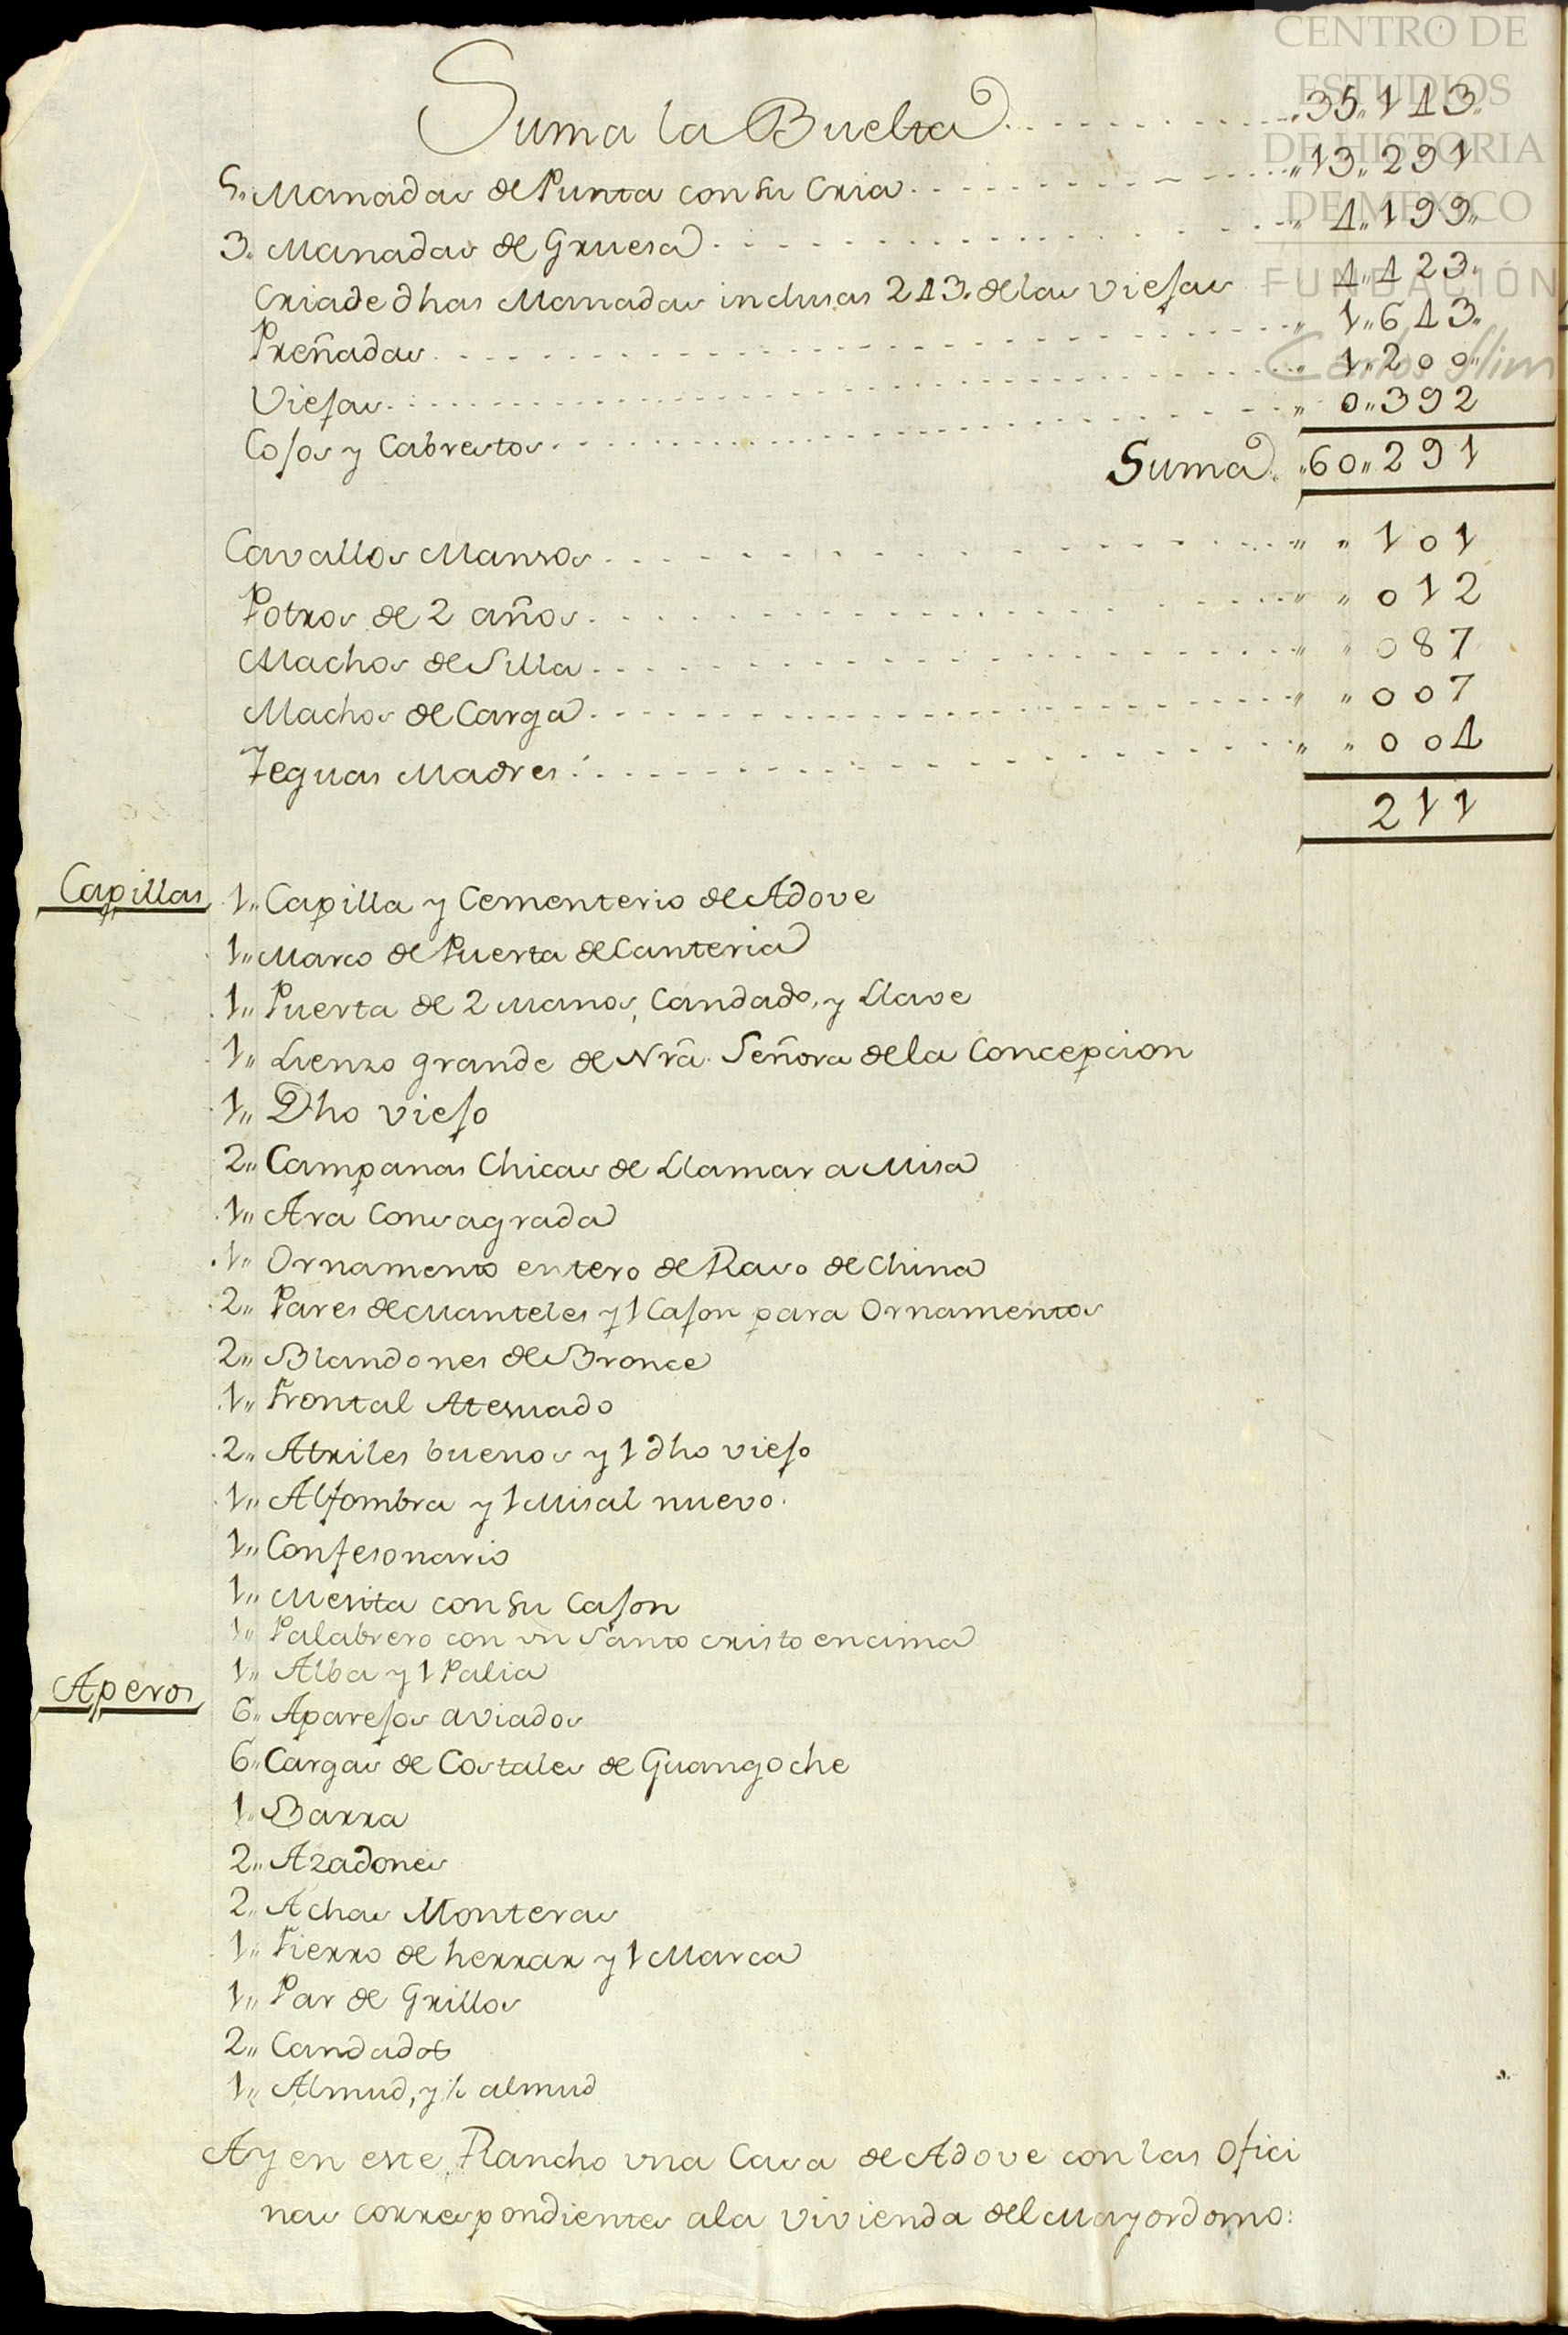 CENTRO DE
ESTUDIOS
DE HISTORIA
DE MEXICO
FUNDACIÓN
Carlos Slim
Suma la Buelta 35,,143
5,, Manadas de Punta con su Cria 13,,291
3,, Manadas de Gruesa 4,,199
Cria de dhas Manadas inclusas 243 de las viejas 4,,423
Preñadas 1,,643
Viejas 1,,200
Cojos y Cabrestos 0,,392
Suma 60,,291
Cavallos Mansos 101
Potros de 2 años 012
Machos de Silla 087
Machos de Carga 007
Yeguas Madres 004
211
Capillas
1,, Capilla y Cementerio de Adove
1,, Marco de Puerta de Canteria
1,, Puerta de 2 Manos, Candado, y Llave
1,, Lienzo grande de Nrã. Señora de la Concepcion
1,, Dho viejo
2,, Campanas Chicas de Llamar a Misa
1,, Ara Consagrada
1,, Ornamento entero de Raso de China
2,, Pares de Manteles y 1 Cajon para Ornamentos
2,, Blandones de Bronce
1,, Frontal Aternado
2,, Atriles buenos y 1 dho viejo
1,, Alfombra y 1 Misal nuevo.
1,, Confesonario
1,, Mesita con su Cajon
1,, Palabrero con un Santo cristo encima
1,, Alba y 1 Palia
Aperos
6,, Aparejos aviados
6,, Cargas de Costales de Guangoche
1,, Barra
2,, Azadones
2,, Achas Monteras
1,, Fierro de herrar y 1 Marca
1,, Par de Grillos
2,, Candados
1,, Almud, y ½ almud
Ay en este Rancho una Casa de Adove con las Ofici
nas correspondientes ala vivienda del Mayordomo: